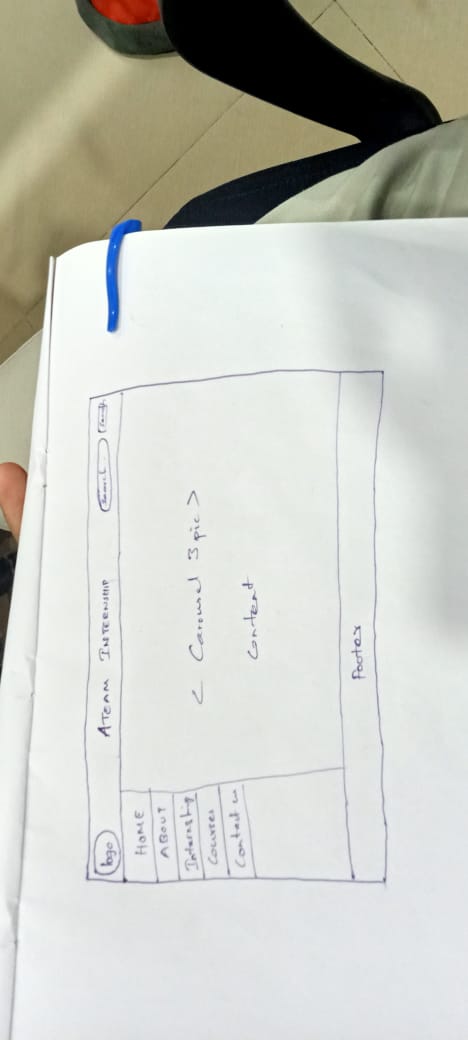 logo
ATEAM INTERNSHIP
Search...
HOME
ABOUT
Internship
Courses
Contact us
< Carousel 3 pic >
Content
Footer